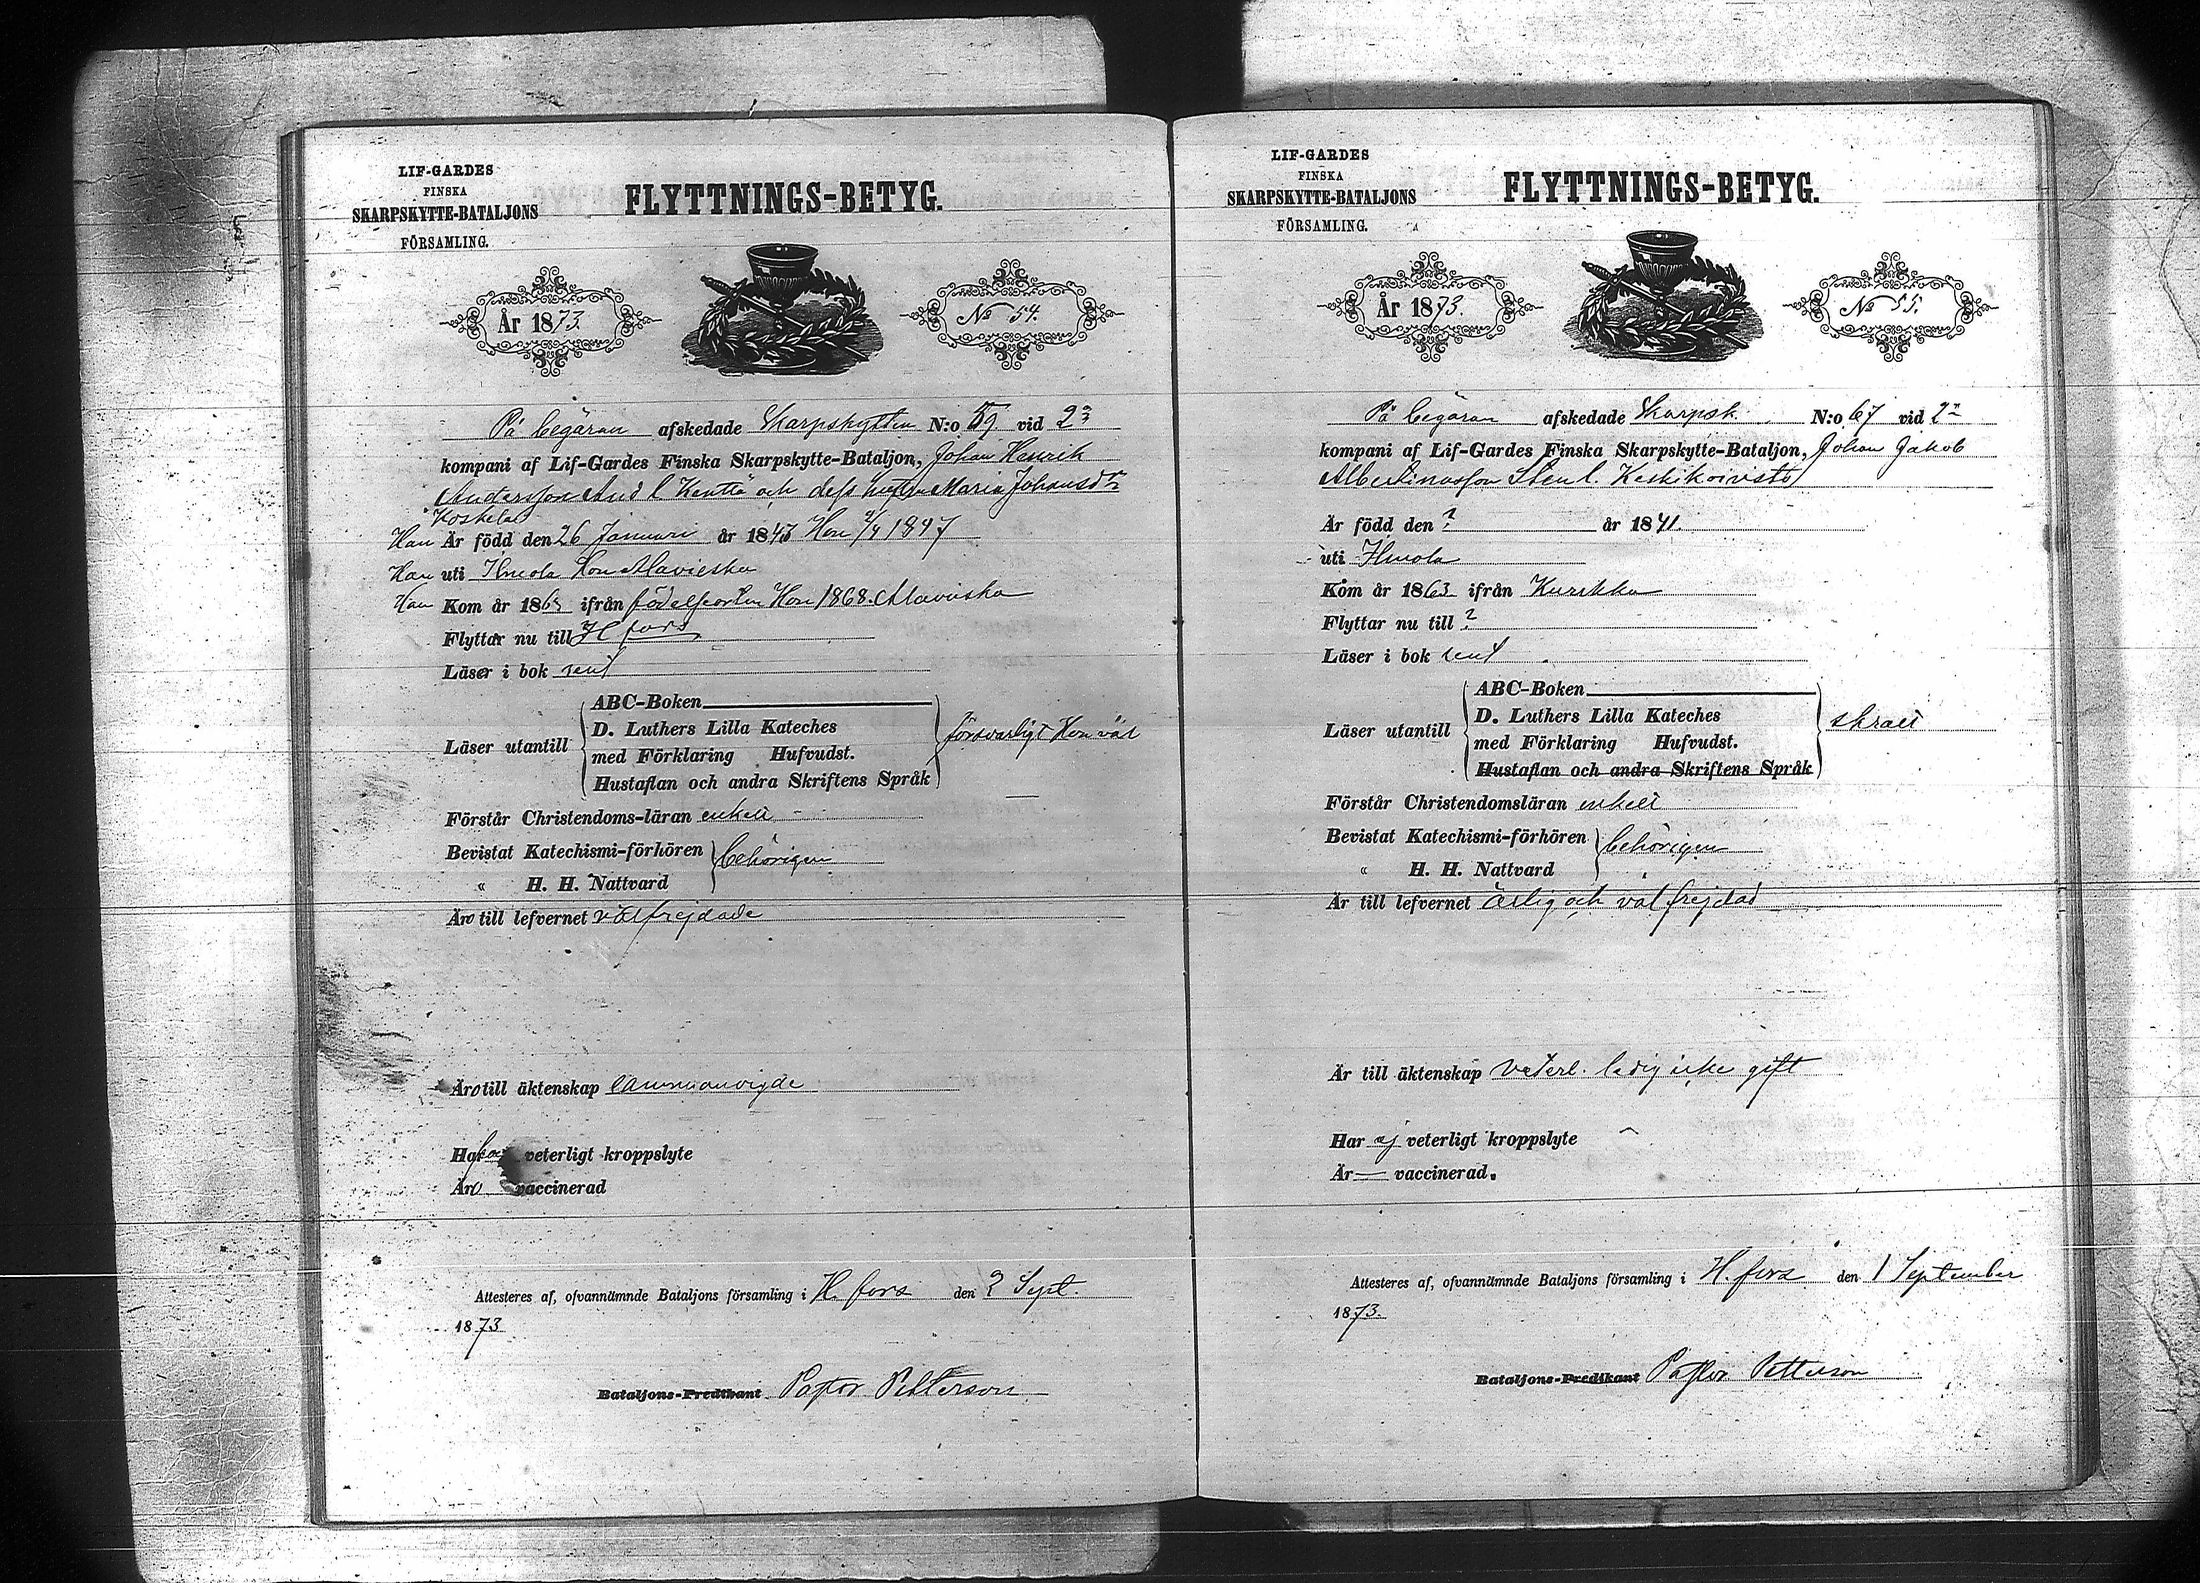 LIF-GARDES
FINSKA
SKARPSKYTTE-BATALJONS
FÖRSAMLING.
FLYTTNINGS-BETYG.
År 1873.
No 54.
På begäran afskedade Skarpskytten N:o 59 vid 2a
kompani af Lif-Gardes Finska Skarpskytte-Bataljon, Johan Henrik
Andersson And l Kenttä och dess hustru Maria Johansdr
Koskela
Han Är född den 26 Januari år 1843 Hon 2/4 1847
Han uti Ilmola Hon Alavieska
Han Kom år 1865 ifrån födelseorten Hon 1868. Alavieska
Flyttar nu till H fors
Läser i bok rent
ABC-Boken
D. Luthers Lilla Kateches
Läser utantill med Förklaring Hufvudst. försvarligt Hon väl
Hustaflan och andra Skriftens Språk
Förstår Christendoms-läran enkelt
Bevistat Katechismi-förhören behörigen
« H. H. Nattvard
Äro till lefvernet välfrejdade
Äro till äktenskap sammanvigde
Hafva veterligt kroppslyte
Äro vaccinerad
Attesteres af, ofvannämnde Bataljons församling i H. fors den 2 Sept.
1873
Bataljons-Predikant Pastor Petterson
LIF-GARDES
FINSKA
SKARPSKYTTE-BATALJONS
FÖRSAMLING.
FLYTTNINGS-BETYG.
År 1873.
No 55.
På begäran afskedade Skarpsk. N:o 67 vid 2a
kompani af Lif-Gardes Finska Skarpskytte-Bataljon, Johan Jakob
Albertinasson Sten l. Keskikoivisto
Är född den ? år 1841.
uti Ilmola
Kom år 1863 ifrån Kurikka
Flyttar nu till ?
Läser i bok rent
ABC-Boken
D. Luthers Lilla Kateches
Läser utantill med Förklaring Hufvudst. skralt
Hustaflan och andra Skriftens Språk
Förstår Christendomsläran enkelt
Bevistat Katechismi-förhören behörigen
« H. H. Nattvard
Är till lefvernet ärlig och väl frejdad
Är till äktenskap veterl. ledig icke gift
Har ej veterligt kroppslyte
Är — vaccinerad.
Attesteres af, ofvannämnde Bataljons församling i H. fors den 1 September
1873.
Bataljons-Predikant Pastor Petterson